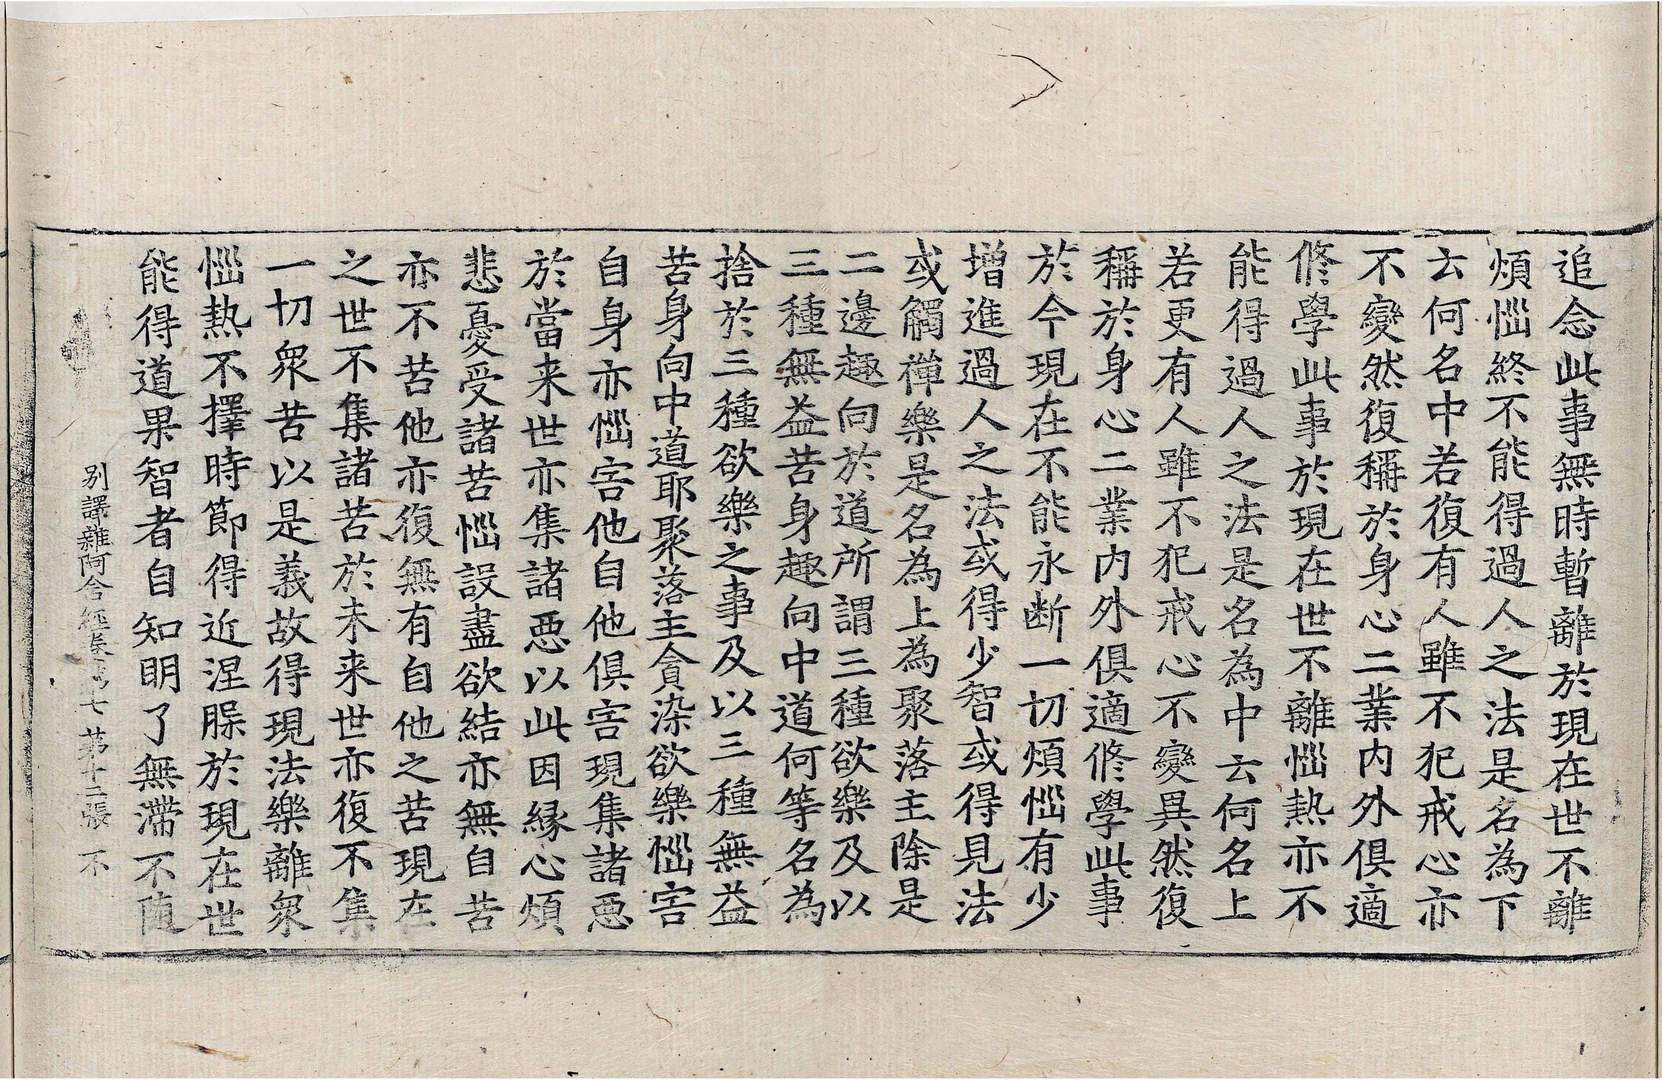 追念此事無時暫離於現在世不離
煩惱終不能得過人之法是名為下
云何名中若復有人雖不犯戒心亦
不變然復稱於身心二業內外俱適
修學此事於現在世不離惱熱亦不
能得過人之法是名為中云何名上
若更有人雖不犯戒心不變異然復
稱於身心二業內外俱適修學此事
於今現在不能永断一切煩惱有少
增進過人之法或得少智或得見法
或觸禪樂是名為上為聚落主除是
二邊趣向於道所謂三種欲樂及以
三種無益苦身趣向中道何等名為
捨於三種欲樂之事及以三種無益
苦身向中道耶聚落主貪染欲樂惱害
自身亦惱害他自他俱害現集諸惡
於當来世亦集諸惡以此因緣心煩
悲憂受諸苦惱設盡欲結亦無自苦
亦不苦他亦復無有自他之苦現在
之世不集諸苦於未来世亦復不集
一切眾苦以是義故得現法樂離眾
惱熱不擇時節得近涅槃於現在世
能得道果智者自知明了無滯不随
別譯雜阿含經卷第七 第十二張 不